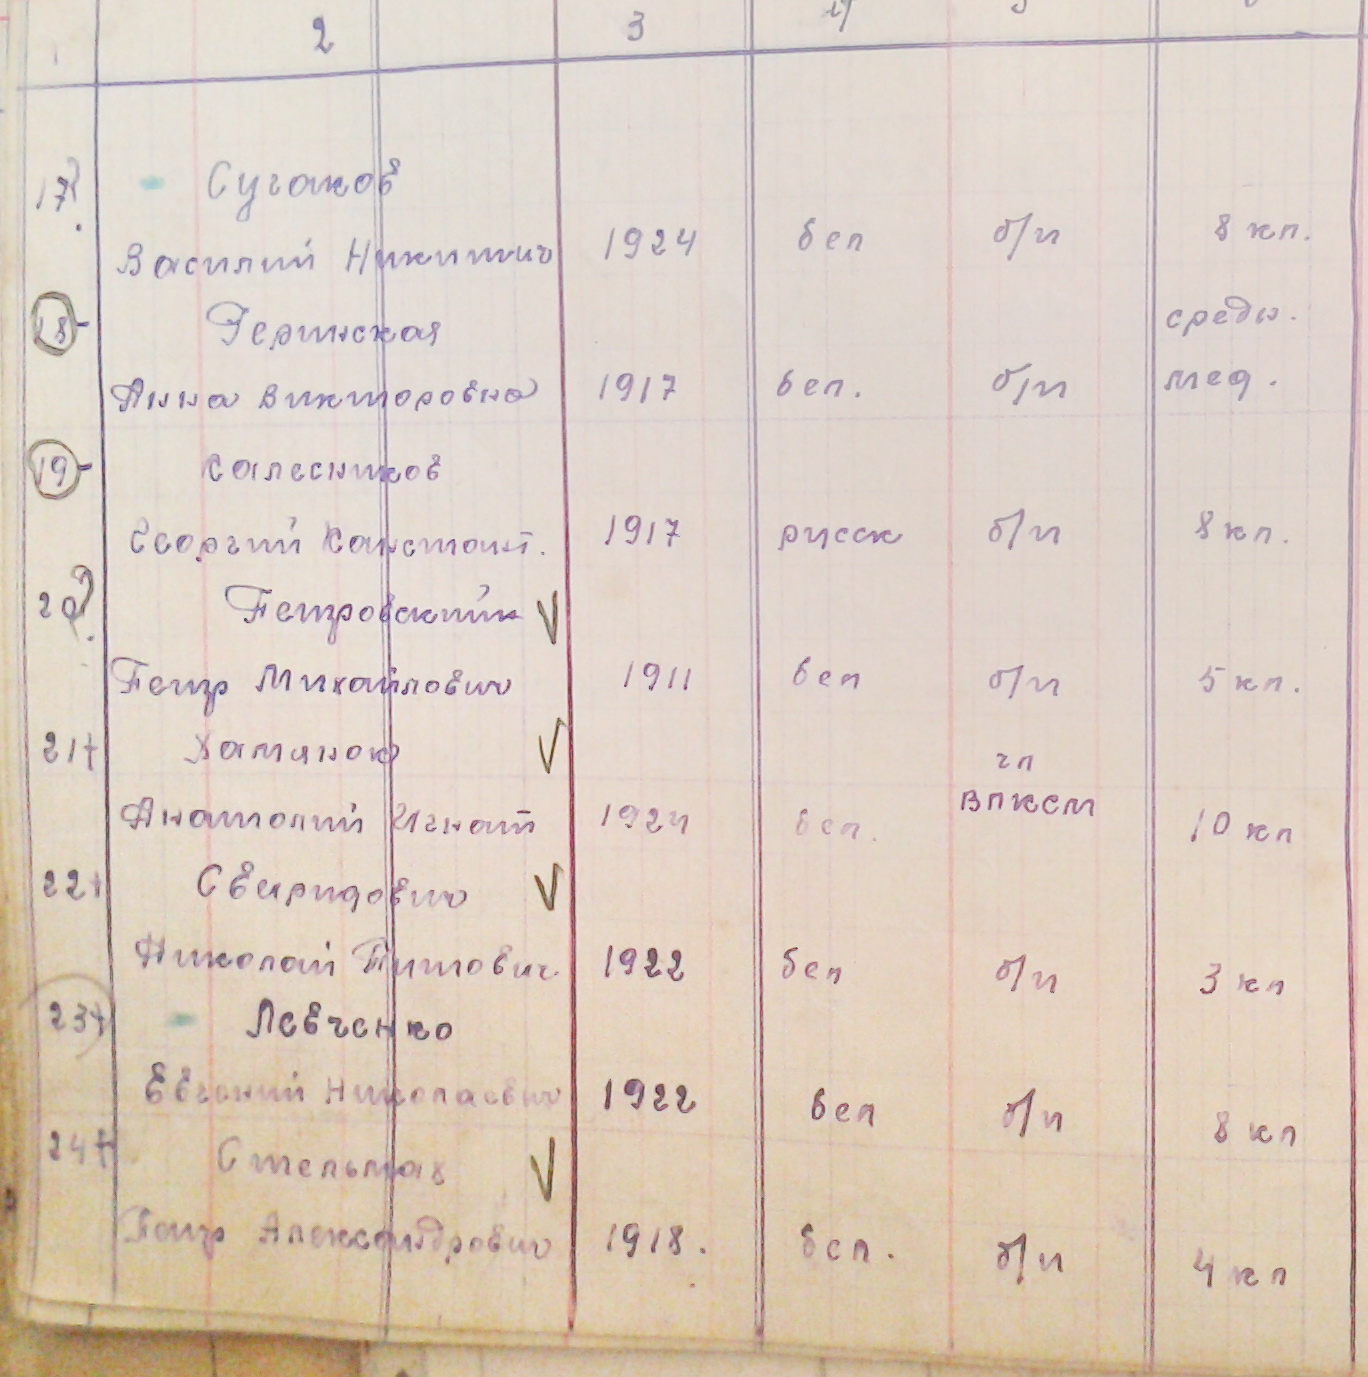 2 3 4
17? Сугаков
Василий Никитич 1924 бел б/п 8 кл.
18- Геринская средн.
Анна Викторовна 1917 бел. б/п мед.
19- Калесников
Георгий Констант. 1917 русск б/п 8 кл.
20? Петровский
Петр Михайлович 1911 бел б/п 5 кл.
21+ Хаминок чл
Анатолий Игнат 1924 бел. ВЛКСМ 10 кл
22+ Свиридович
Николай Титович 1922 бел б/п 3 кл
23+ Левченко
Евгений Николаевич 1922 бел б/п 8 кл
24+ Стельмах
Петр Александрович 1918. бел. б/п 4 кл